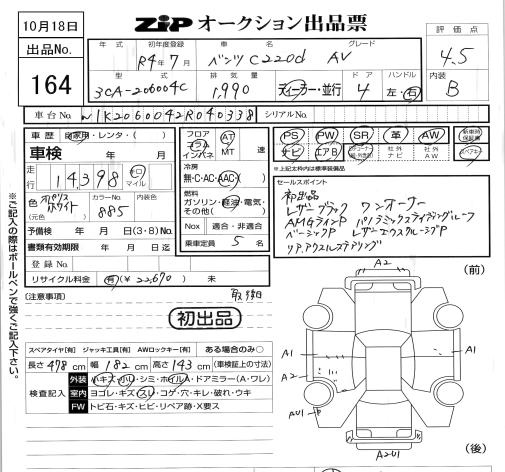 10月18日
出品No.
164
ZIP オークション出品票
評価点
4.5
内装
B
年式 初年度登録 車名 グレード
R4年7月 ベンツ C220d AV
型式 排気量 ドア ハンドル
3CA-206004C 1,990 ディーラー・並行 4 左・右
車台No. W1K2060042R040338 シリアルNo.
車歴 自家用・レンタ・( )
車検 年 月
走行 14,398 キロ マイル
色 オパリスホワイト (元色) カラーNo. 885 内装色
予備検 年 月 日(3・8)No.
書類有効期限 年 月 日迄
登録No.
リサイクル料金 有(¥22,670) 未
フロア コラム インパネ AT MT 速
冷房
無・C・AC・AAC・( )
燃料
ガソリン・軽油・電気・その他( )
Nox 適合・非適合
乗車定員 5 名
PS PW SR 革 AW 新車時保証書
ナビ エアB 社外ナビ 社外AW スペアキー
※上記太枠内は標準装備品
セールスポイント
初出品 ワンオーナー
レザーブラック パノラミックスライディングルーフ
AMGラインP レザーエクスクルーシブP
ベーシックP
リア.アクスルステアリング
※ご記入の際はボールペンで強くご記入下さい。
(注意事項)
取、保有
初出品
スペアタイヤ[有] ジャッキ工具[有] AWロックキー[有] ある場合のみ○
長さ 478 cm 幅 182 cm 高さ 143 cm (車検証上の寸法)
検査記入
外装 小キズ・小凹・シミ・ホイルA・ドアミラー(A・ワレ)
室内 ヨゴレ・キズ・スレ・コゲ・穴・キレ・破れ・ウキ
FW トビ石・キズ・ヒビ・リペア跡・X要ス
A2
(前)
A1
A1
A2
AU1
A2U1
(後)